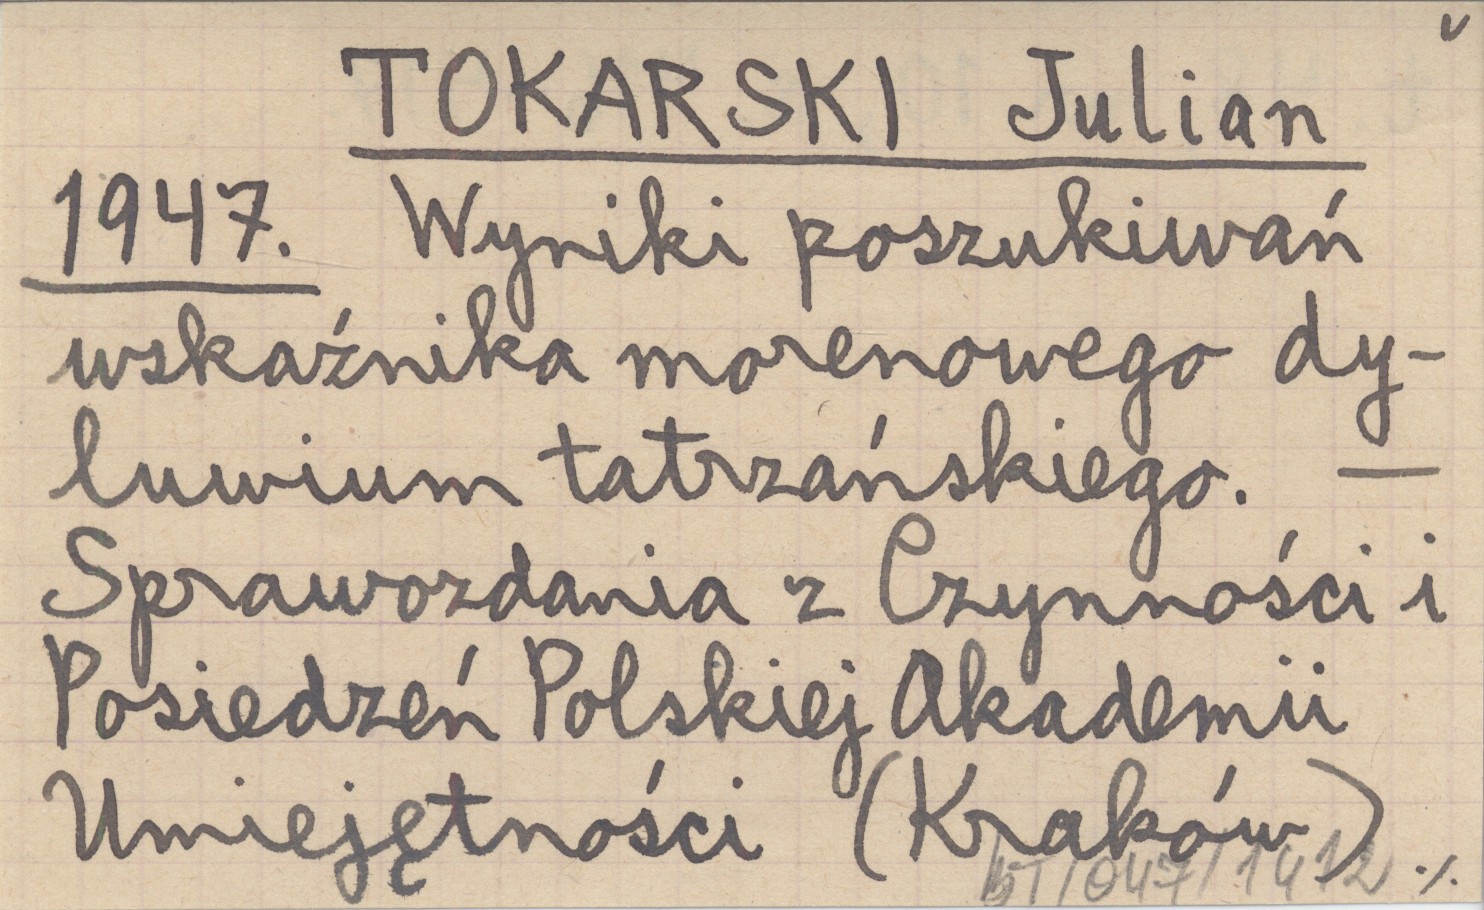 v
TOKARSKI Julian
1947. Wyniki poszukiwań
wskaźnika morenowego dy-
luwium tatrzańskiego. —
Sprawozdania z Czynności i
Posiedzeń Polskiej Akademii
Umiejętności (Kraków) ./.
/047/1412